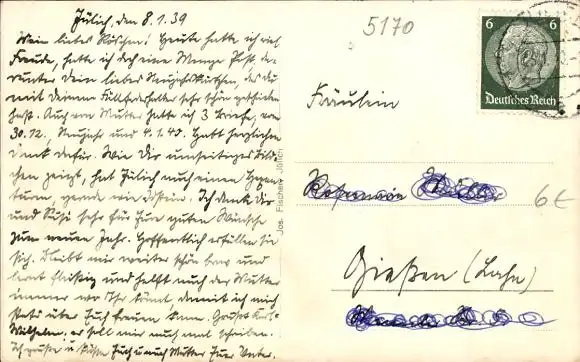 Jülich, den 8.1.39
Mein liebes Röschen! Heute hatte ich viel
Freude, hatte ich doch eine Menge Post da-
runter Dein liebes Neujahrskärtchen, das du
mit Deinem Füllfederhalter sehr schön geschrieben
hast. Auch von Mutter hatte ich 3 Briefe, vom
30.12., Neujahr und 4.1.40. Hab herzlichen
Dank dafür. Wie Dir umseitiges Bild-
chen zeigt, hat Jülich auch einen Hexen-
turm, gerade wie Idstein. Ich danke Dir
und Susi sehr für Eure guten Wünsche
zum neuen Jahr. Hoffentlich erfüllen sie
sich. Bleibt mir weiter schön brav und
lernt fleißig und helft auch der Mutter
immer wo Ihr könnt damit ich mich
stets über Euch freuen kann. Grüßt Karl-
Wilhelm, er soll mir auch mal schreiben.
Ich grüße u. küsse Euch u. auch Mutter Euer Vater.
Jos. Fischer, Jülich
5170
6 6
Deutsches Reich
Fräulein
6€
Gießen (Lahn)